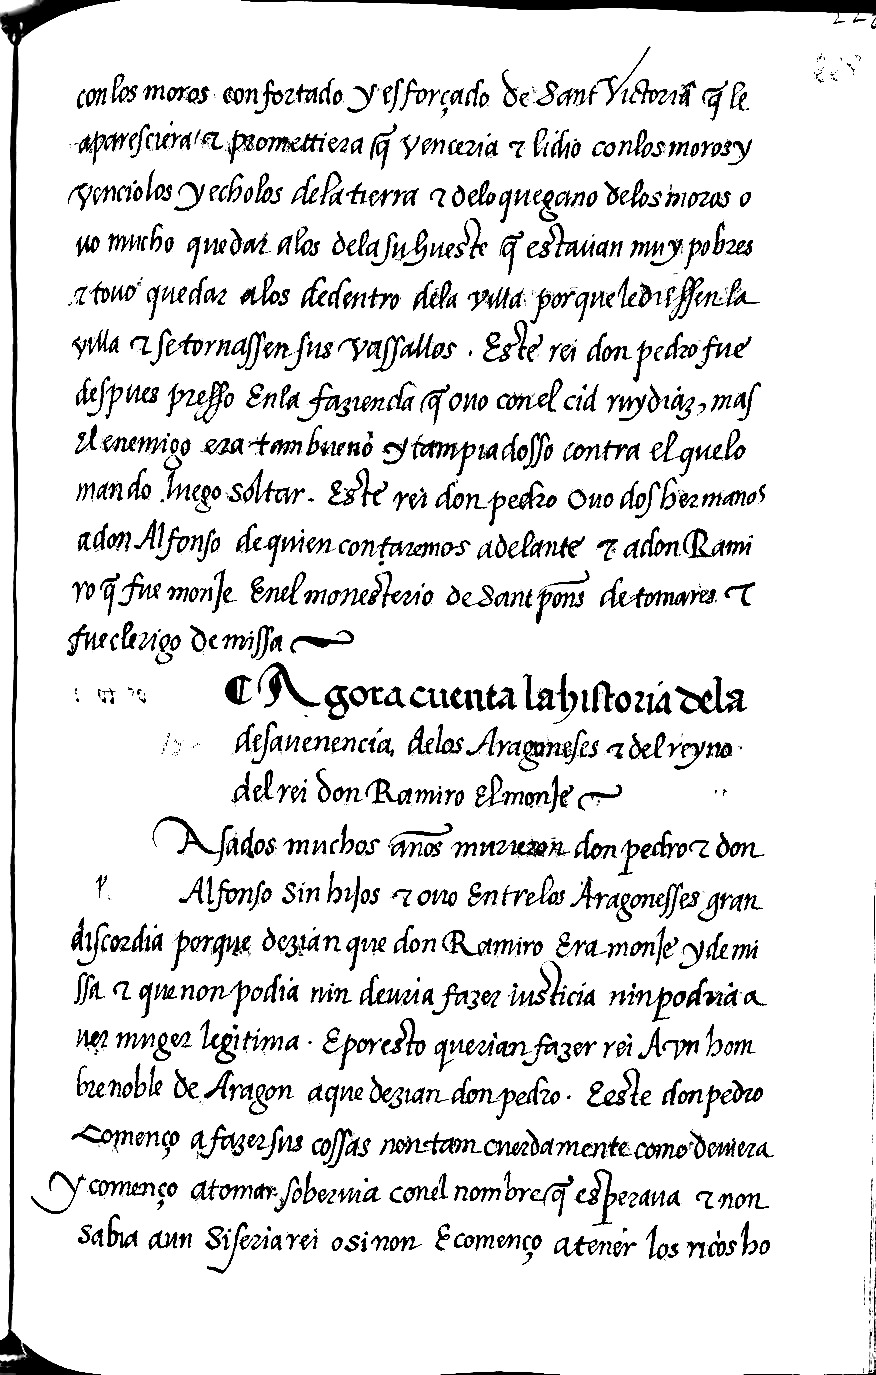 228
con los moros confortado y esforçado de Sant Victoria q̃ le
aparesciera ⁊ promettiera q̃ venceria ⁊ lidio con los moros y
venciolos y echolos de la tierra ⁊ de lo que gano de los moros o
uo mucho que dar a los de la su hueste q̃ estauan muy pobres
⁊ touo que dar a los de dentro de la villa porque le diessen la
villa ⁊ se tornassen sus vassallos . Este rei don pedro fue
despues presso En la fazienda q̃ ouo con el cid ruy diaz, mas
El enemigo era tam bueno y tam piadosso contra el que lo
mando luego soltar . Este rei don pedro Ouo dos hermanos
a don Alfonso de quien contaremos adelante ⁊ a don Rami
ro q̃ fue monje En el monesterio de Sant põns de tomares ⁊
fue clerigo de missa
¶ Agora cuenta la historia de la
desauenencia de los Aragoneses ⁊ del reyno
del rei don Ramiro El monje
Asados muchos años murieron don pedro ⁊ don
p. Alfonso sin hijos ⁊ ouo Entre los Aragonesses gran
discordia porque dezian que don Ramiro Era monje y de mi
ssa ⁊ que non podia nin deuria fazer iusticia nin podria a
uer muger legitima . E por esto querian fazer rei A vn hom
bre noble de Aragon a que dezian don pedro . E este don pedro
Començo a fazer sus cossas non tam cuerdamente como deuiera
Y començo a tomar soberuia con el nombre q̃ esperaua ⁊ non
sabia aun si seria rei o si non E començo a tener los ricos ho